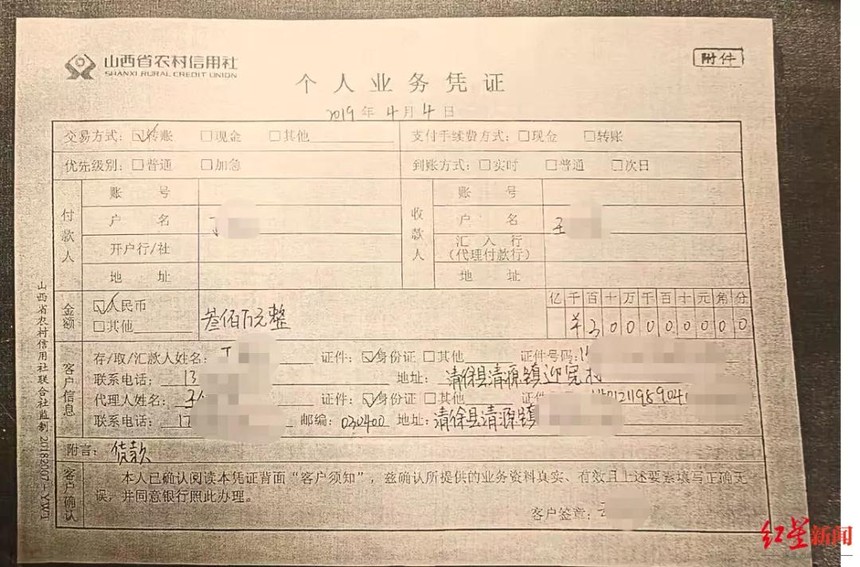 山西省农村信用社
SHANXI RURAL CREDIT UNION
附件
个人业务凭证
2019年4月4日
交易方式：☑转账 □现金 □其他 支付手续费方式：□现金 □转账
优先级别：□普通 □加急 到账方式：□实时 □普通 □次日
付款人 账号 收款人 账号
户名 户名 王
开户行/社 汇入行（代理付款行）
地址 地址
金额 ☑人民币 叁佰万元整 亿千百十万千百十元角分
□其他 ¥300000000
客户信息 存/取/汇款人姓名： 证件：☑身份证 □其他 证件号码：
联系电话：13 地址：清徐县清源镇迎宪村
代理人姓名：王 证件：☑身份证 □其他
联系电话：17 邮编：030400 地址：清徐县清源镇
附言：货款
客户确认 本人已确认阅读本凭证背面“客户须知”，兹确认所提供的业务资料真实、有效且上述要素填写正确无
误，并同意银行照此办理。
客户签章：
山西省农村信用社联合社监制
红星新闻